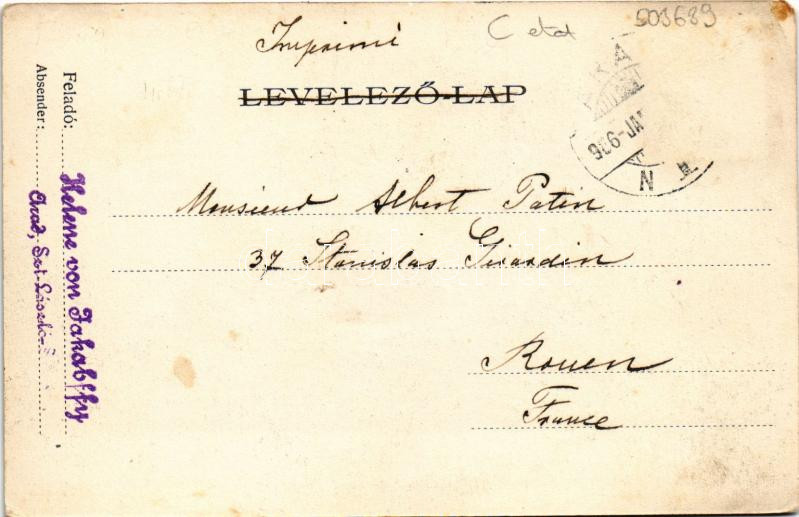 Imprimé
C etat
503689
LEVELEZŐ-LAP
906-JA
N
Monsieur Albert Patin
37 Stanislas Girardin
Rouen
France
Feladó:
Absender:
Helene von Jakabffy
Arad, Szt László